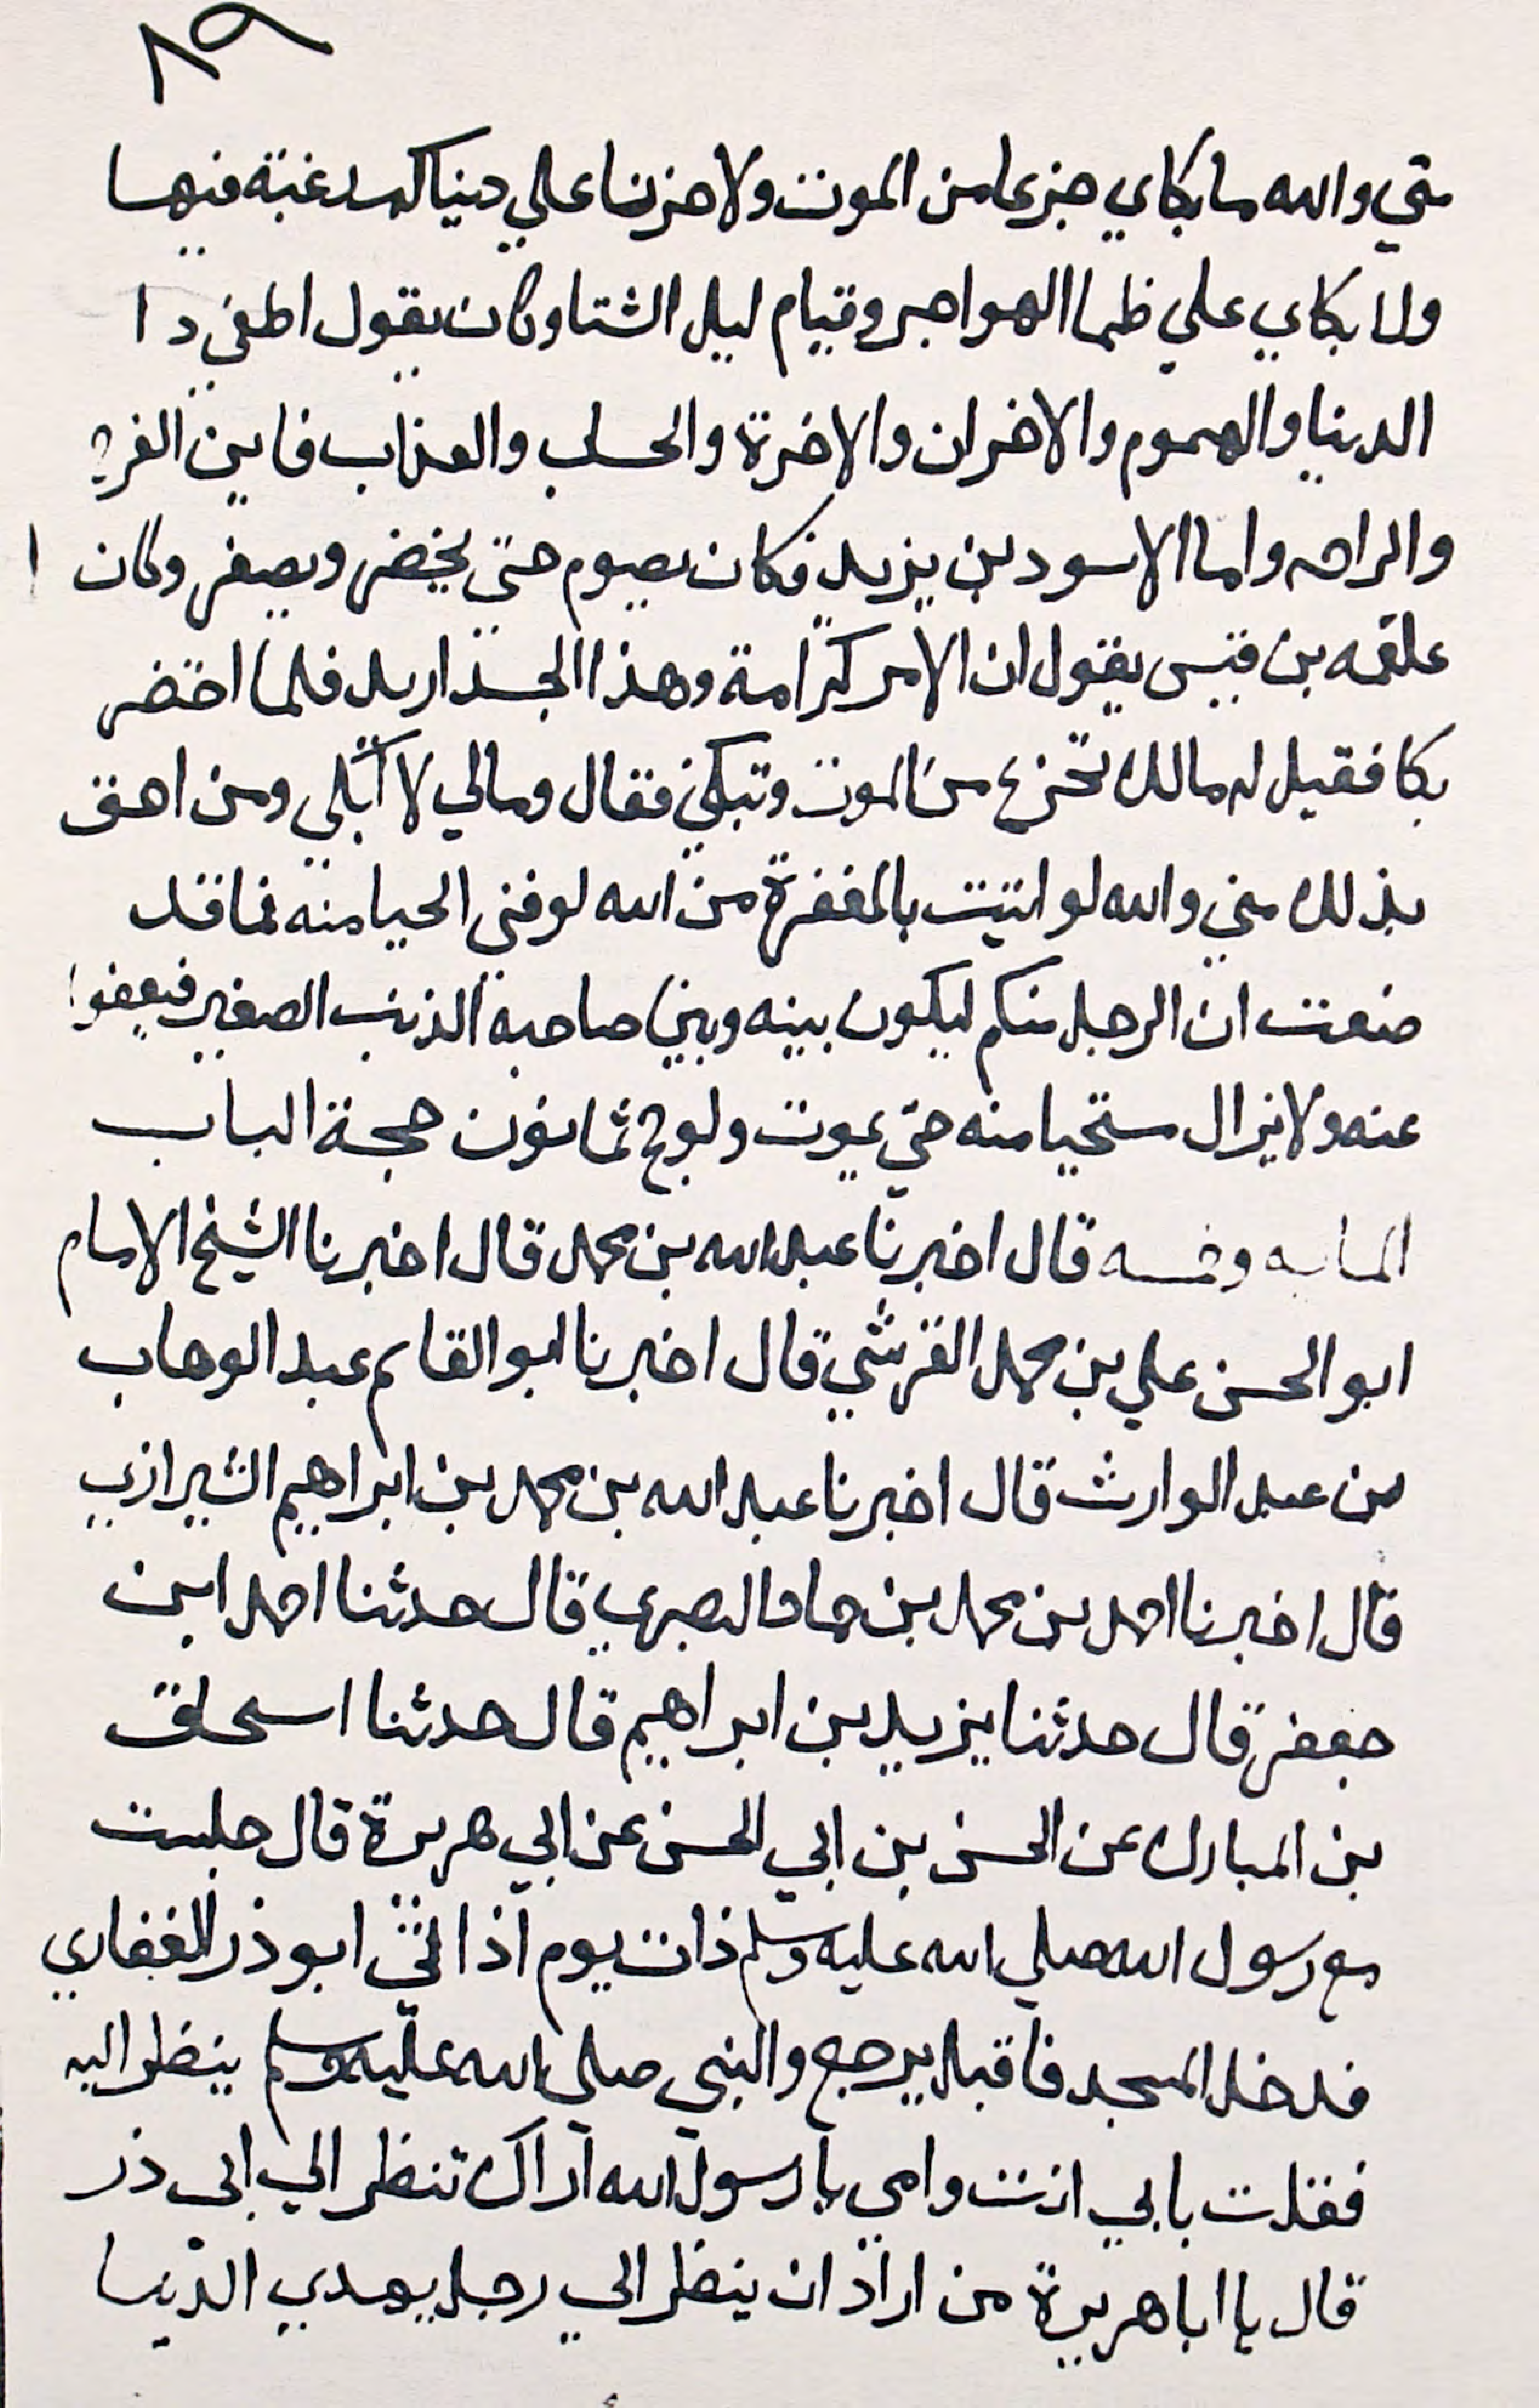 ٨٩
متي والله ما بكاي جزعا من الموت ولا حزنا علي دنياكم رغبة فيها
ولا بكاي علي ظما الهواجر وقيام ليل الشتا وكان يقول اطفي دا
الدنيا والهموم والاحزان والاخرة والحساب والعذاب فاين الفرح
والراحه واما الاسود بن يزيد فكان يصوم حتي يخضر ويصفر وكان
علقمه بن قيس يقول ان الامر كرامة وهذا الجسد اريد فلما احتضر
بكا فقيل له مالك تجزع من الموت وتبكي فقال ومالي لا ابكي ومن احق
بذلك مني والله لو اتيت بالمغفرة من الله لوفني الحيا منه فما قد
صنعت ان الرجل منكم ليكون بينه وبين صاحبه الذنب الصغير فيعفوا
عنه ولا يزال مستحيا منه حتي يموت ولو حج ثمانون حجة الباب
المايه وخمسه قال اخبرنا عبد الله بن محمد قال اخبرنا الشيخ الامام
ابو الحسن علي بن محمد القرشي قال اخبرنا ابو القاسم عبد الوهاب
من عبد الوارث قال اخبرنا عبد الله بن محمد بن ابراهيم الشيرازي
قال اخبرنا احمد بن محمد بن حماد البصري قال حدثنا احمد ابن
جعفر قال حدثنا يزيد بن ابراهيم قال حدثنا اسحاق
بن المبارك عن الحسن بن ابي الحسن عن ابي هريرة قال جلست
مع رسول الله صلي الله عليه وسلم ذات يوم اذا اتي ابو ذر الغفاري
فدخل المسجد فاقبل يرجع والنبي صلي الله عليه وسلم ينظر اليه
فقلت بابي انت وامي يا رسول الله اراك تنظر الي ابي ذر
قال يا ابا هريرة من اراد ان ينظر الي رجل يهدي الدنيا